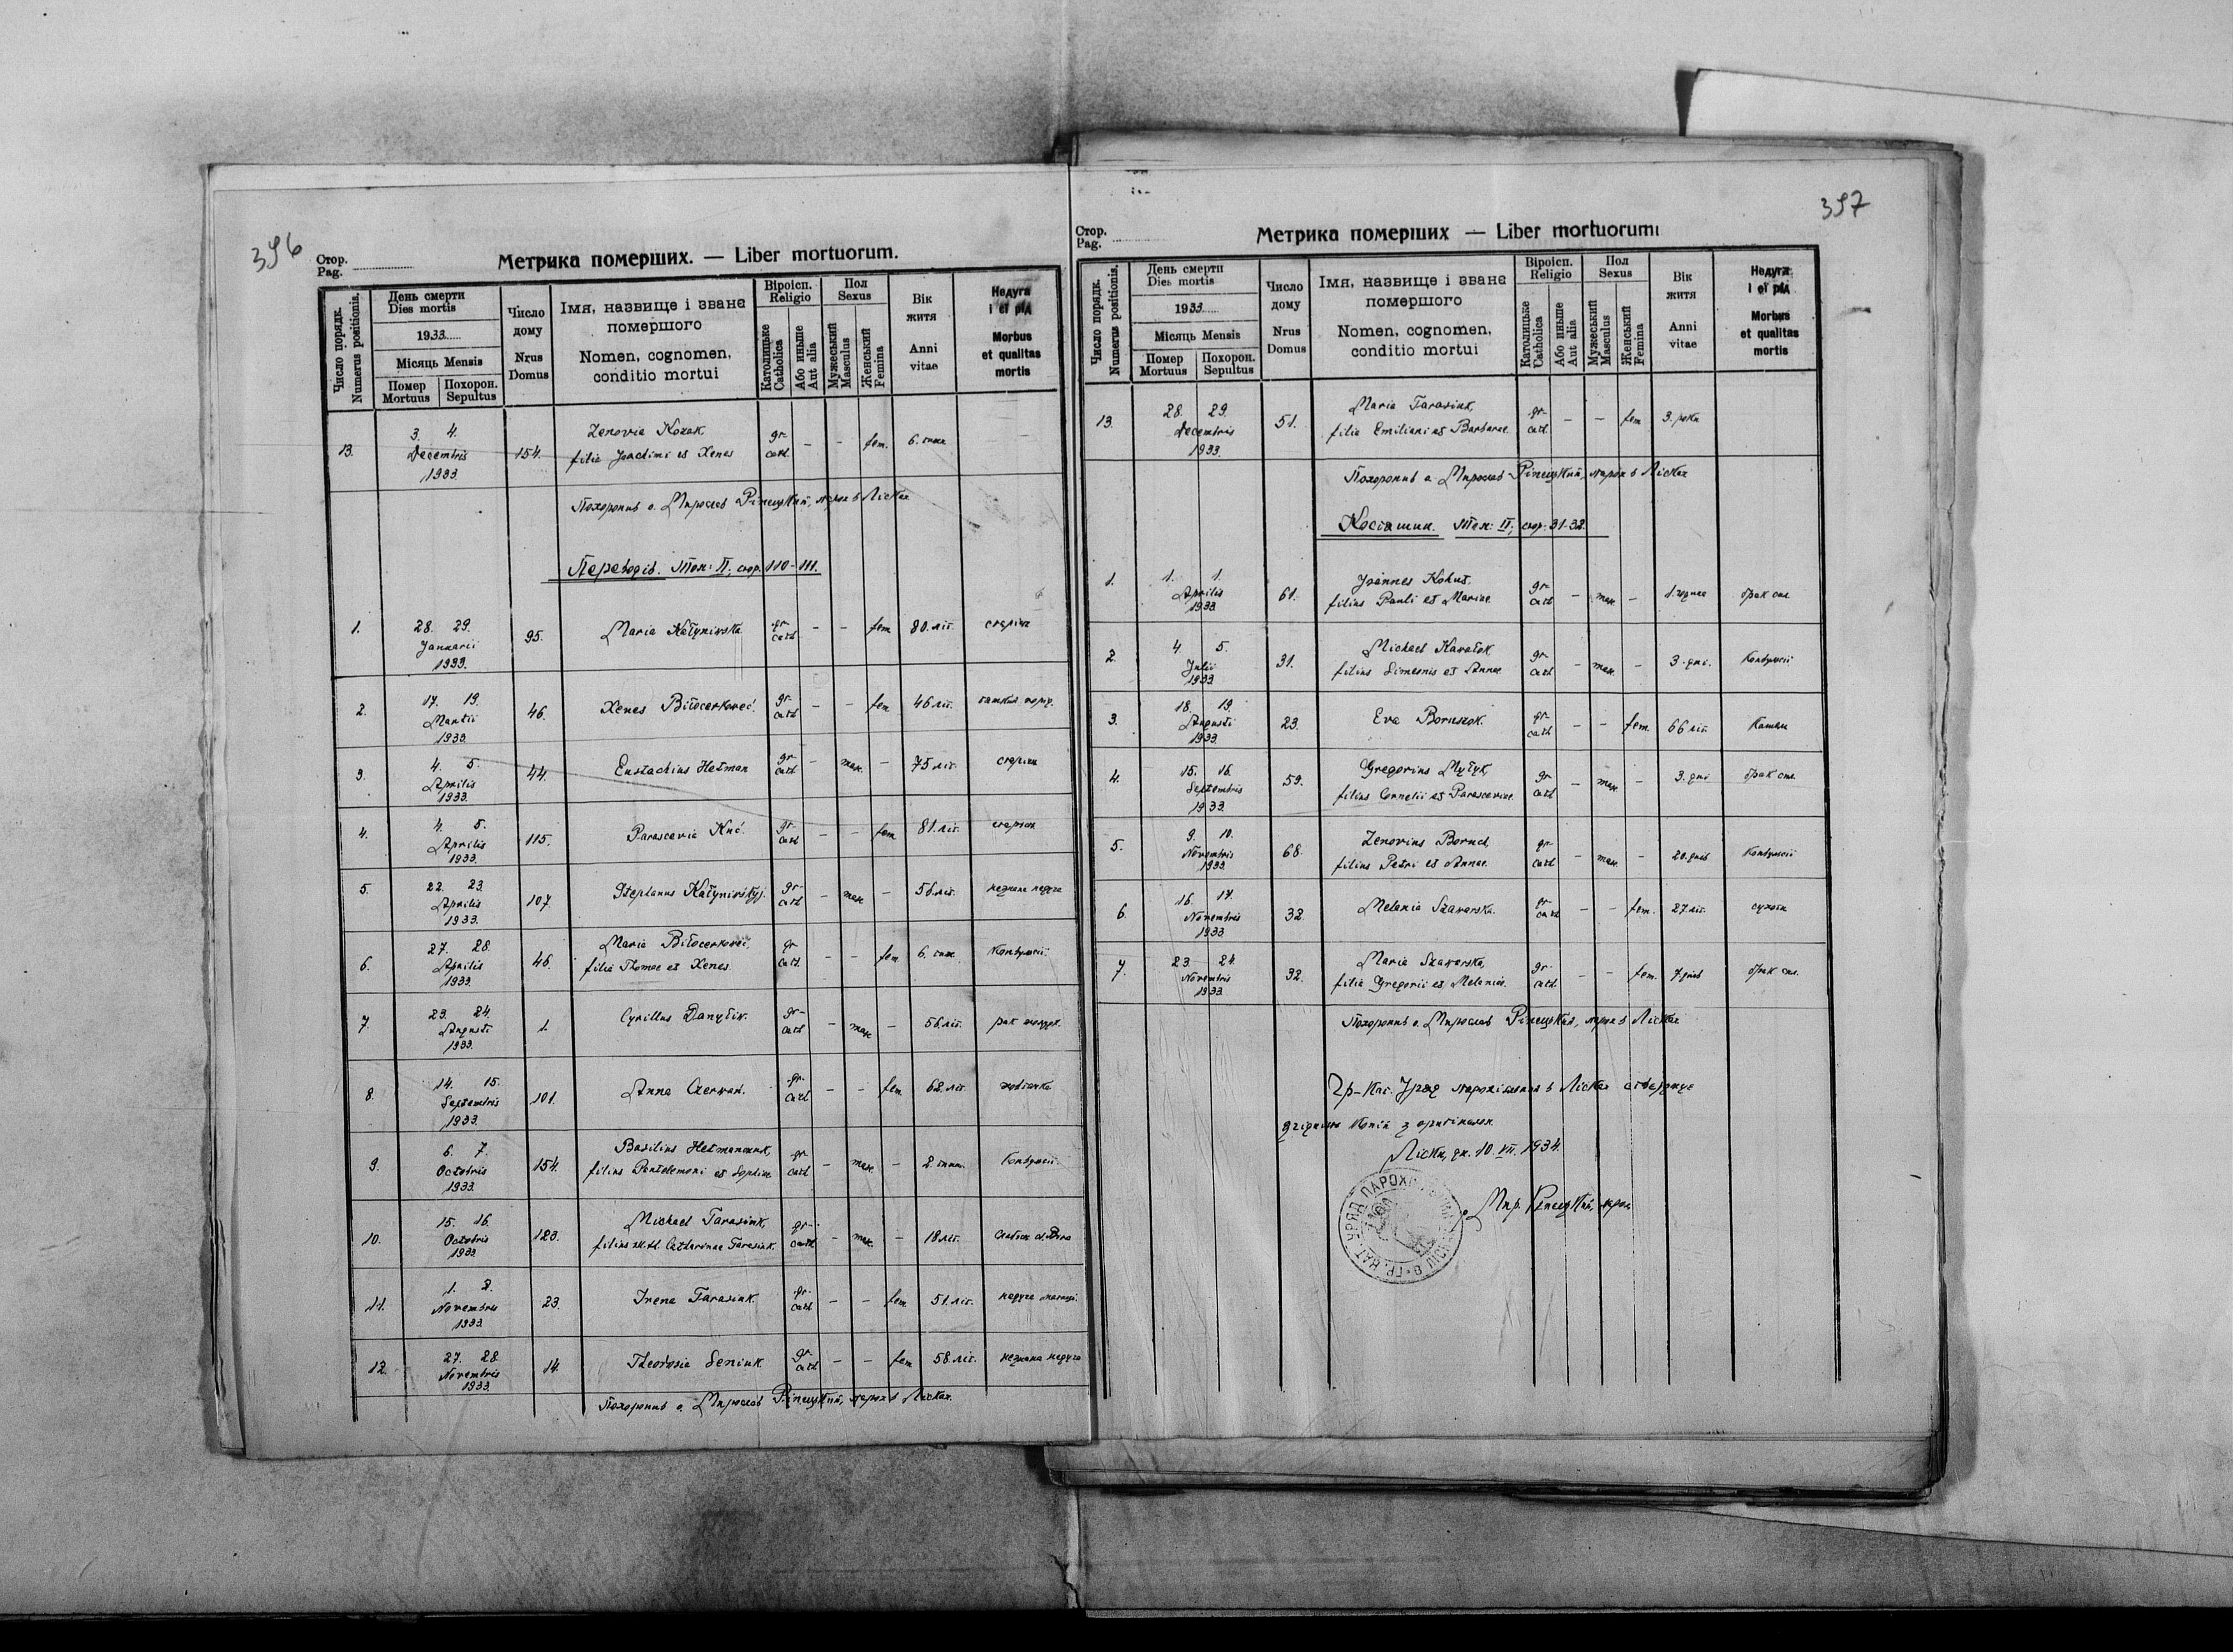 396
Стор.
Pag.
Метрика померших. — Liber mortuorum.
Число порядк.
Numerus positionis.
День смерти
Dies mortis
1933
Місяць Mensis
Помер
Mortuus
Похорон.
Sepultus
Число
дому
Nrus
Domus
Імя, назвище і зване
помершого
Nomen, cognomen,
conditio mortui
Віроісп.
Religio
Католицьке
Catholica
Або иньше
Aut alia
Пол
Sexus
Мужеський
Masculus
Женський
Femina
Вік
житя
Anni
vitae
Недуга
і єї рід
Morbus
et qualitas
mortis
13. 3. 4. Decembris 1933 154. Zenovia Kozak, filia Joachimi et Xenes gr- cath. - - fem. 6.
Похоронив о. Мирослав Ріпецький, парох в Лісках
Переводів. Том: II, стор. 110-111.
1. 28. 29. Januarii 1933. 95. Maria Kałyniwska gr- cath - - fem 80. літ.
2. 17. 19. Martii 1933. 46. Xenes Biłocerkoweć. gr- cath - - fem 46 літ.
3. 4. 5. Aprilis 1933. 44. Eustachius Hetman gr- cath - mas. - 75 літ.
4. 4. 5. Aprilis 1933. 115. Parascevia Kuć. gr- cath - - fem 81. літ.
5. 22. 23. Aprilis 1933. 107. Stephanus Kałyniwśkyj. gr- cath - mas - 56 літ. незнана недуга
6. 27. 28. Aprilis 1933. 46. Maria Biłocerkoweć, filia Thomae et Xenes. gr cath. - - fem 6. Конвульсії
7. 23. 24. Augusti 1933. 1. Cyrillus Danyluk. gr- cath - mas - 56 літ. рак
8. 14. 15. Septembris 1933. 101. Anna Czerwak. gr- cath - - fem 62 літ.
9. 6. 7. Octobris 1933. 154. Basilius Hetmanczuk, filius Panteleimoni et Sophiae. gr cath - mas. - 2. Конвульсії.
10. 15. 16. Octobris 1933 123. Michael Tarasiuk, filius Catharinae Tarasiuk. gr- cath - mas. - 18 літ.
11. 1. 2. Novembris 1933. 23. Irena Tarasiuk. gr- cath - - fem. 51. літ. недуга
12. 27. 28. Novembris 1933. 14. Theodosia Seniuk. gr- cath - - fem 58. літ. незнана недуга
Похоронив о. Мирослав Ріпецький, парох в Лісках.
397
Стор.
Pag.
Метрика померших — Liber mortuorum
Число порядк.
Numerus positionis.
День смерти
Dies mortis
1933
Місяць Mensis
Помер
Mortuus
Похорон.
Sepultus
Число
дому
Nrus
Domus
Імя, назвище і зване
помершого
Nomen, cognomen,
conditio mortui
Віроісп.
Religio
Католицьке
Catholica
Або иньше
Aut alia
Пол
Sexus
Мужеський
Masculus
Женський
Femina
Вік
житя
Anni
vitae
Недуга
і єї рід
Morbus
et qualitas
mortis
13. 28. 29. Decembris 1933. 51. Maria Tarasiuk, filia Emiliani et Barbarae. gr- cath. - - fem 3. роки
Похоронив о. Мирослав Ріпецький, парох в Лісках
Костяшин. Том: II, стор: 31-32.
1. 1. 1. Aprilis 1933. 61. Joannes Kohut, filius Pauli et Mariae. gr- cath - mas - 1. година брак сил
2. 4 5. Julii 1933. 31. Michael Kawałok filius Simeonis et Annae gr- cath - mas. - 3. дні. Конвульсії
3. 18. 19. Augusti 1933. 23. Eva Boruszok. gr- cath - - fem. 66 літ Кашель
4. 15. 16. Septembris 1933. 59. Gregorius Mytyk, filius Cornelii et Parasceviae. gr cath - mas - 3. дні брак сил
5. 9. 10. Novembris 1933. 68. Zenovius Boruch, filius Petri et Annae. gr- cath - mas. - 20. днів Конвульсії
6. 16. 17. Novembris 1933. 32. Melania Szawarska. gr- cath - - fem. 27 літ. сухоти
7. 23 24. Novembris 1933. 32. Maria Szawarska, filia Gregorii et Melaniae. gr- cath - - fem. 7 днів брак сил.
Похоронив о. Мирослав Ріпецький, парох в Лісках
Гр-кат. Уряд парохіяльний в Лісках стверджує
згідність копії з оригіналом.
Ліски, дн. 10. VII. 1934.
о. Мир. Ріпецький, парох